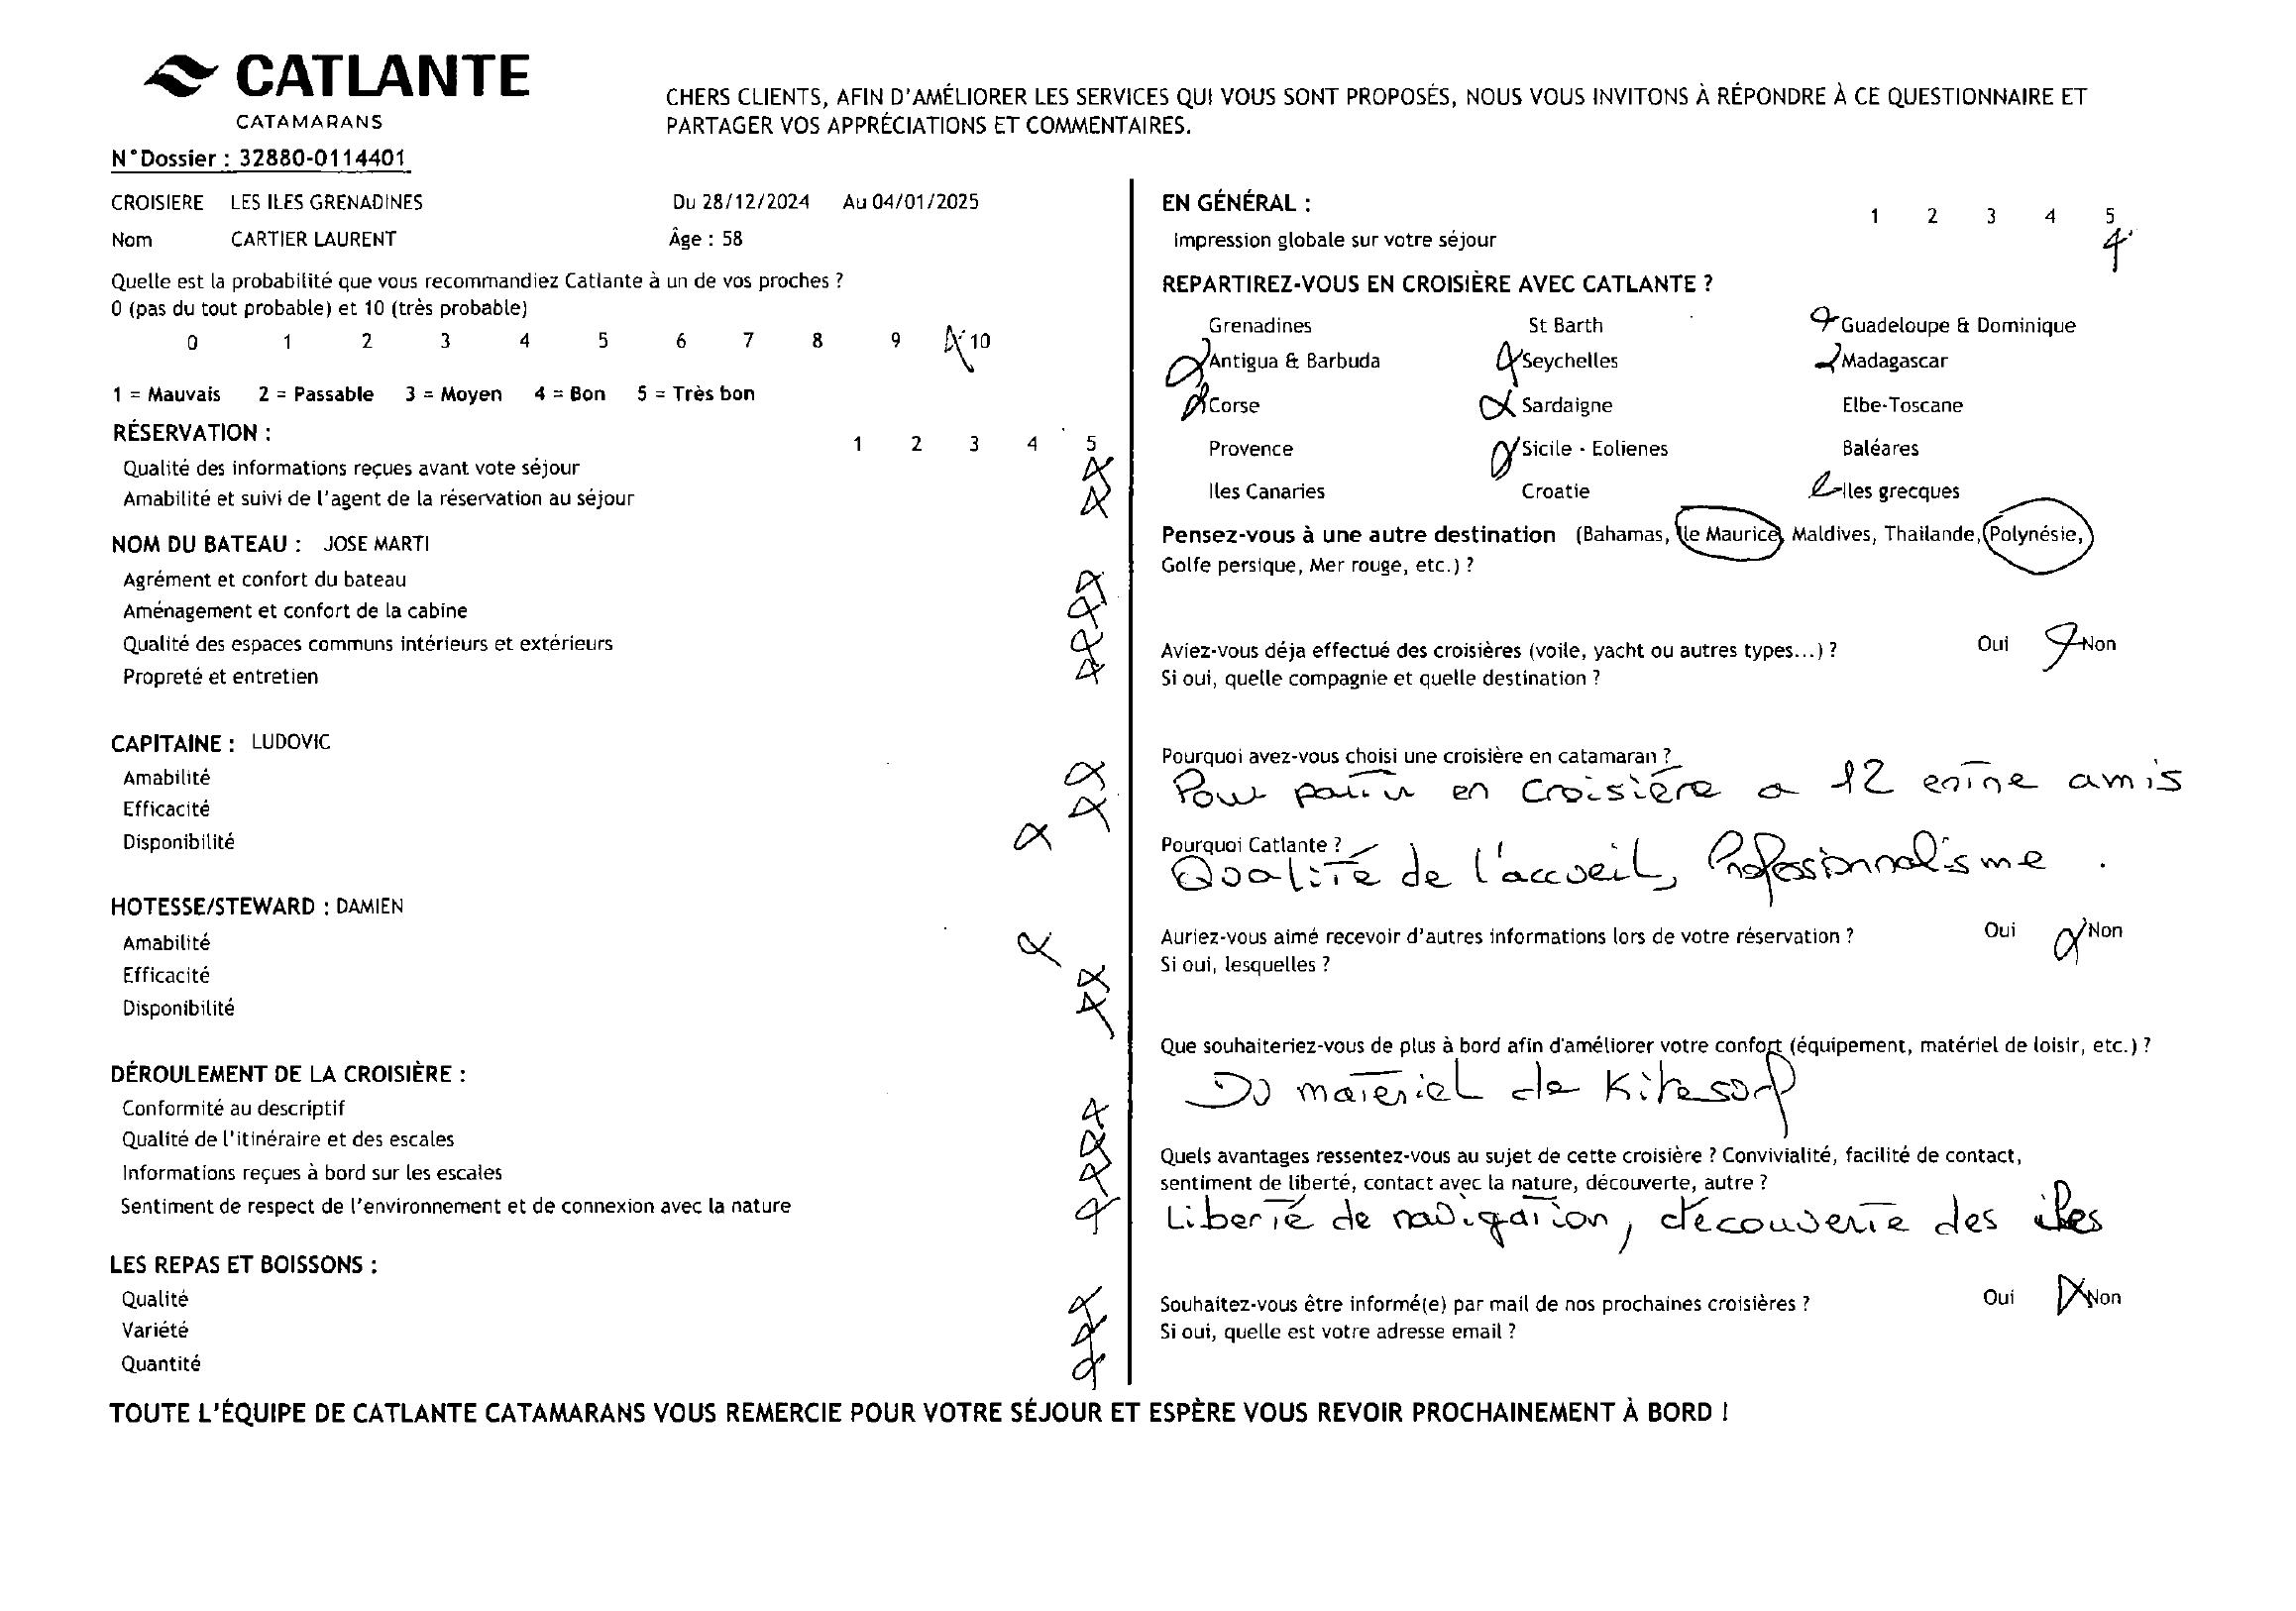 CATLANTE
CATAMARANS
CHERS CLIENTS, AFIN D'AMÉLIORER LES SERVICES QUI VOUS SONT PROPOSÉS, NOUS VOUS INVITONS À RÉPONDRE À CE QUESTIONNAIRE ET
PARTAGER VOS APPRÉCIATIONS ET COMMENTAIRES.
N°Dossier : 32880-0114401
CROISIERE LES ILES GRENADINES Du 28/12/2024 Au 04/01/2025
Nom CARTIER LAURENT Âge : 58
Quelle est la probabilité que vous recommandiez Catlante à un de vos proches ?
0 (pas du tout probable) et 10 (très probable)
0 1 2 3 4 5 6 7 8 9 10
1 = Mauvais 2 = Passable 3 = Moyen 4 = Bon 5 = Très bon
RÉSERVATION :
1 2 3 4 5
Qualité des informations reçues avant vote séjour
Amabilité et suivi de l'agent de la réservation au séjour
NOM DU BATEAU : JOSE MARTI
Agrément et confort du bateau
Aménagement et confort de la cabine
Qualité des espaces communs intérieurs et extérieurs
Propreté et entretien
CAPITAINE : LUDOVIC
Amabilité
Efficacité
Disponibilité
HOTESSE/STEWARD : DAMIEN
Amabilité
Efficacité
Disponibilité
DÉROULEMENT DE LA CROISIÈRE :
Conformité au descriptif
Qualité de l'itinéraire et des escales
Informations reçues à bord sur les escales
Sentiment de respect de l'environnement et de connexion avec la nature
LES REPAS ET BOISSONS :
Qualité
Variété
Quantité
EN GÉNÉRAL :
1 2 3 4 5
Impression globale sur votre séjour
REPARTIREZ-VOUS EN CROISIÈRE AVEC CATLANTE ?
Grenadines St Barth Guadeloupe & Dominique
Antigua & Barbuda Seychelles Madagascar
Corse Sardaigne Elbe-Toscane
Provence Sicile - Eolienes Baléares
Iles Canaries Croatie Iles grecques
Pensez-vous à une autre destination (Bahamas, Ile Maurice, Maldives, Thaïlande, Polynésie,
Golfe persique, Mer rouge, etc.) ?
Aviez-vous déja effectué des croisières (voile, yacht ou autres types...) ? Oui Non
Si oui, quelle compagnie et quelle destination ?
Pourquoi avez-vous choisi une croisière en catamaran ?
Pour partir en croisière a 12 entre amis
Pourquoi Catlante ?
Qualité de l'accueil, Professionnalisme.
Auriez-vous aimé recevoir d'autres informations lors de votre réservation ? Oui Non
Si oui, lesquelles ?
Que souhaiteriez-vous de plus à bord afin d'améliorer votre confort (équipement, matériel de loisir, etc.) ?
Du materiel de Kitesurf
Quels avantages ressentez-vous au sujet de cette croisière ? Convivialité, facilité de contact,
sentiment de liberté, contact avec la nature, découverte, autre ?
Liberté de navigation, découverte des iles
Souhaitez-vous être informé(e) par mail de nos prochaines croisières ? Oui Non
Si oui, quelle est votre adresse email ?
TOUTE L'ÉQUIPE DE CATLANTE CATAMARANS VOUS REMERCIE POUR VOTRE SÉJOUR ET ESPÈRE VOUS REVOIR PROCHAINEMENT À BORD !